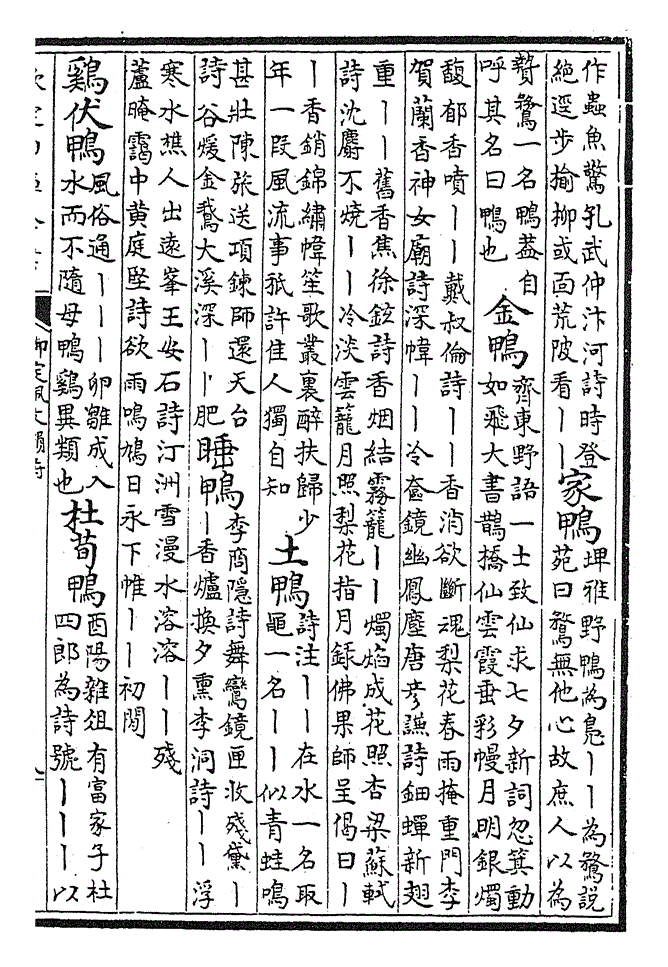 作蟲魚驚孔武仲汴河詩時登
絶逕步揄柳或面荒陂看丨丨
家鴨
埤雅野鴨為鳧丨丨為騖說
苑曰騖無他心故庶人以為
贄騖一名鴨葢自
呼其名曰鴨也
金鴨
齊東野語一士致仙求七夕新詞忽箕動
如飛大書鵲橋仙雲霞垂彩幔月明銀燭
馥郁香噴丨丨戴叔倫詩丨丨香消欲斷魂梨花春雨掩重門李
賀蘭香神女廟詩深幃丨丨冷奩鏡幽鳳塵唐彦謙詩鈿蟬新翅
重丨丨舊香焦徐鉉詩香烟結霧籠丨丨燭焰成花照杏梁蘇軾
詩沈麝不燒丨丨冷淡雲籠月照梨花指月録佛果師呈偈曰丨
丨香銷錦繡幃笙歌叢裏醉扶歸少
年一段風流事祇許佳人獨自知
土鴨
詩注丨丨在水一名耿
黽一名丨丨似青蛙鳴
甚壯陳旅送項鍊師還天台
詩谷煖金鵝大溪深丨丨肥
睡鴨
李商隱詩舞鸞鏡匣收殘黛丨
丨香爐換夕熏李洞詩丨丨浮
寒水樵人出遠峯王安石詩汀洲雪漫水溶溶丨丨殘
蘆晻靄中黄庭堅詩欲雨鳴鳩日永下帷丨丨初閒
鷄伏鴨
風俗通丨丨丨卵雛成入
水而不隨母鴨鷄異類也
杜荀鴨
酉陽雜俎有富家子杜
四郎為詩號丨丨丨以